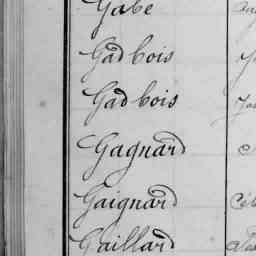 Gabe
Gadbois
Gadbois
Gagnard
Gaignard
Gaillard